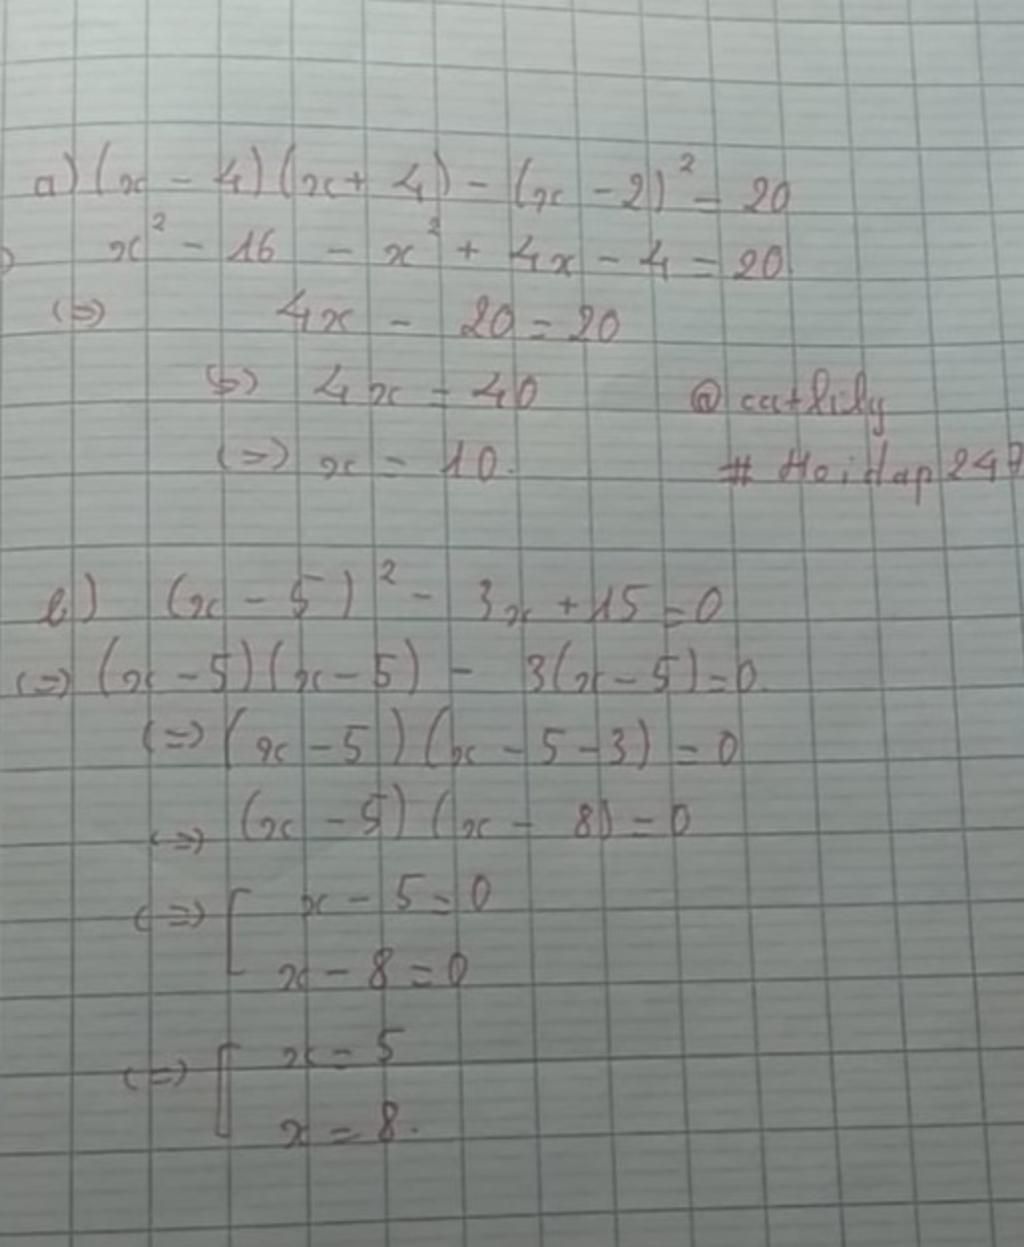 a) (x - 4)(x + 4) - (x - 2)² = 20
x² - 16 - x² + 4x - 4 = 20
(=) 4x - 20 = 20
(=) 4x = 40 @ catlily
(=>) x = 10. # Hoidap247
b) (x - 5)² - 3x + 15 = 0
(=) (x - 5)(x - 5) - 3(x - 5) = 0
(=) (x - 5)(x - 5 - 3) = 0
(=) (x - 5)(x - 8) = 0
(=) [ x - 5 = 0
x - 8 = 0
(=) [ x = 5
x = 8.